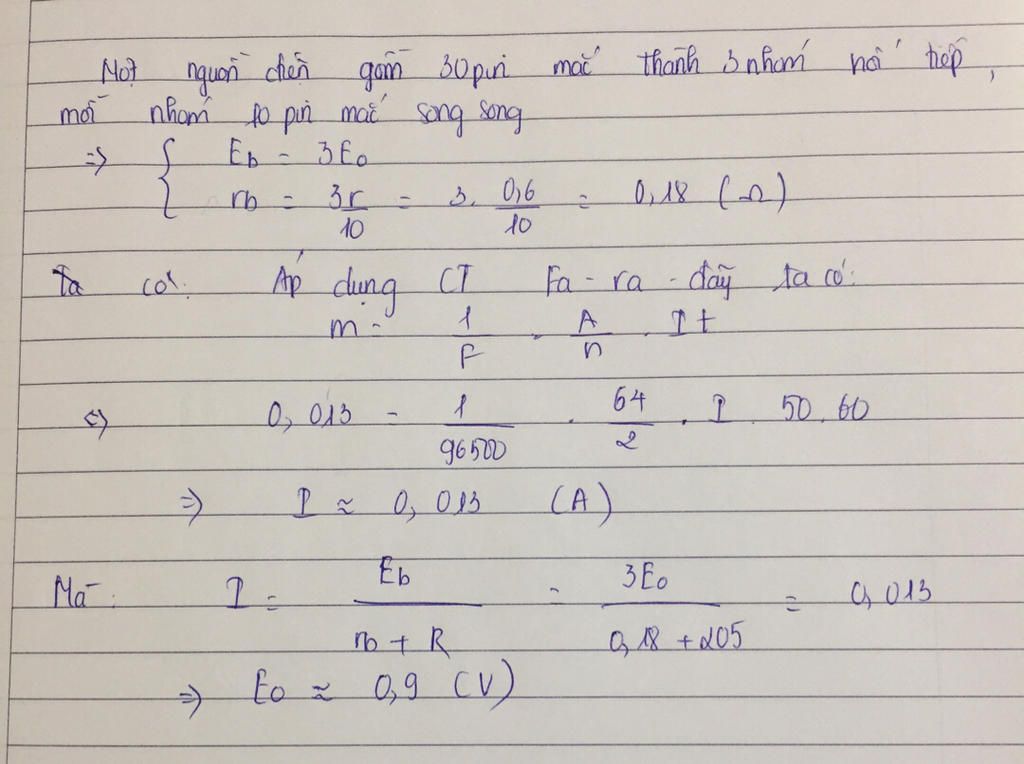 Một nguồn điện gồm 30 pin mắc thành 3 nhóm nối tiếp,
mỗi nhóm 10 pin mắc song song
=> { Eb = 3E₀
rb = 3r/10 = 3. 0,6/10 = 0,18 (Ω)
Ta có: Áp dụng CT Fa-ra-đây ta có:
m = 1/F . A/n . It
<=> 0,013 = 1/96500 . 64/2 . I . 50.60
=> I ≈ 0,013 (A)
Mà: I = Eb/(rb + R) = 3E₀/(0,18 + 205) = 0,013
=> E₀ ≈ 0,9 (V)